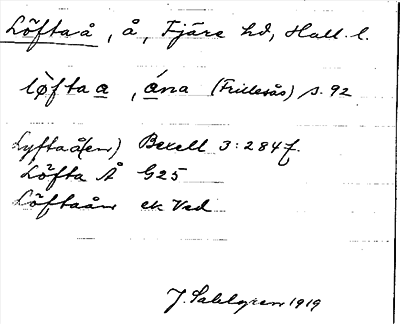 Löftaå, å, Fjäre hd, Hall. l.
lòftaa, ána (Frillesås) s. 92
Lyftaå(en) Bexell 3:284f.
Löfta Å G25
Löftaån ek Ved
J. Sahlgren 1919